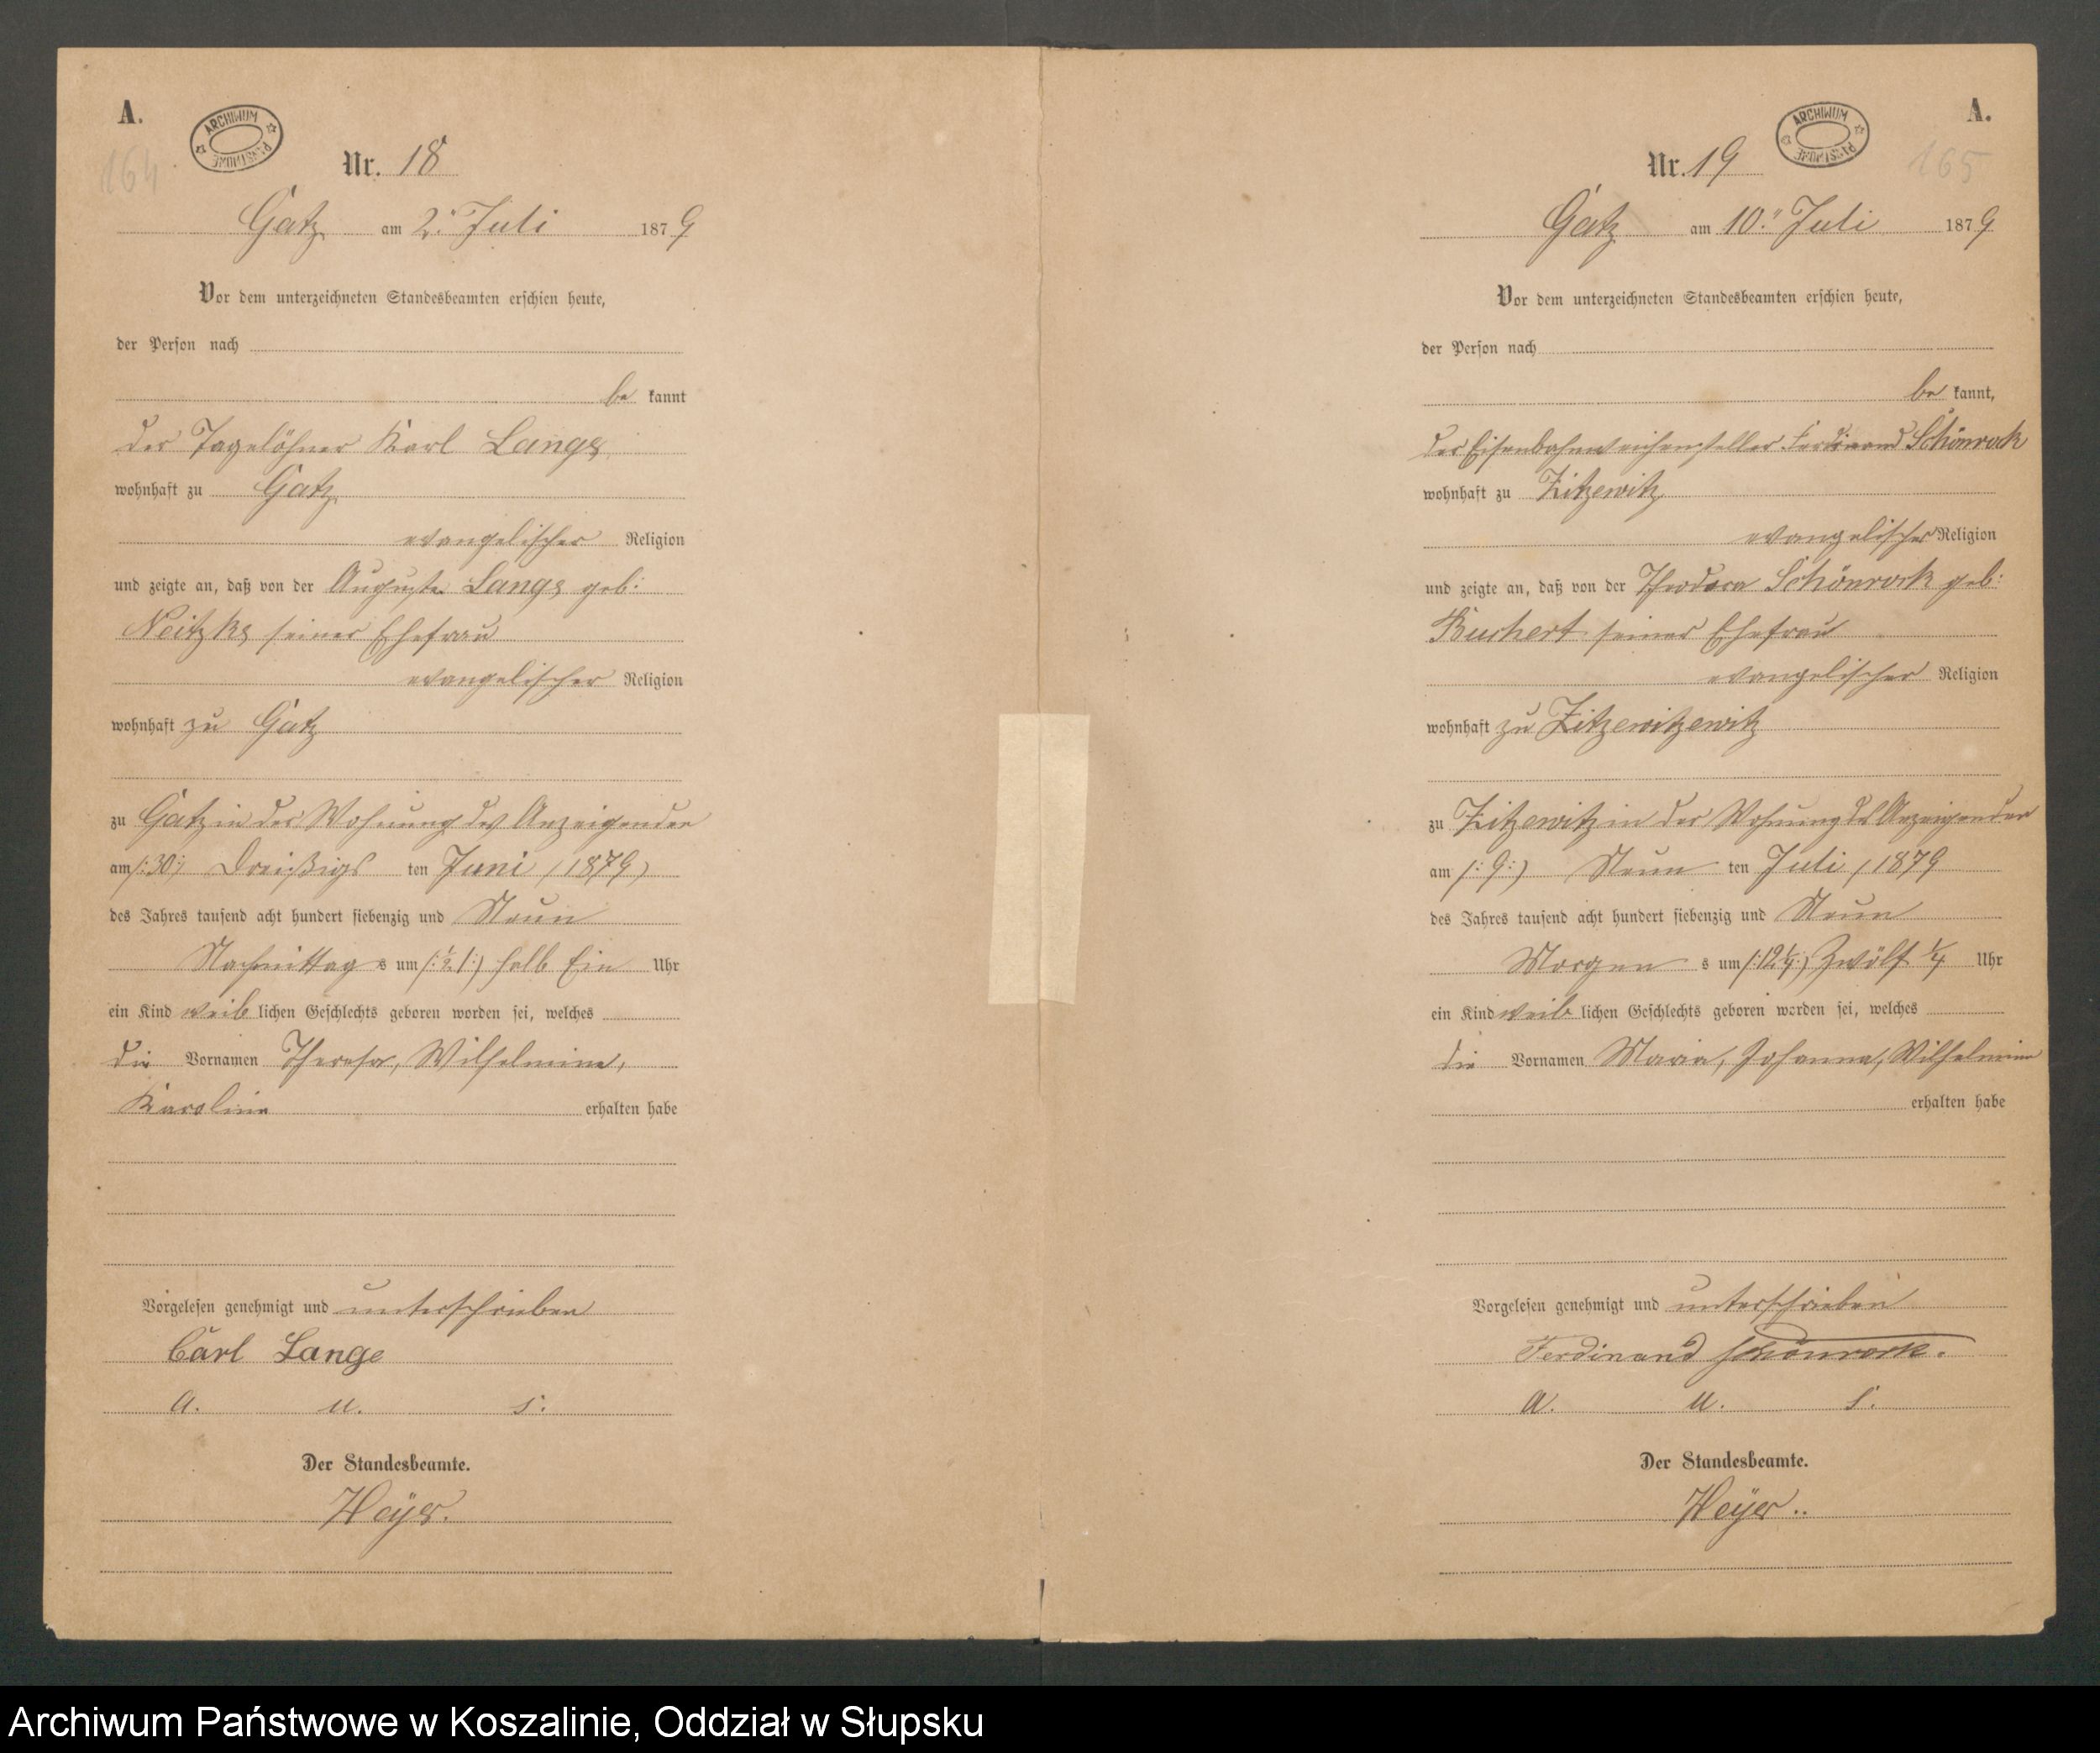 A.
ARCHIWUM PAŃSTWOWE
164
Nr. 18
Gatz am 2. Juli 1879
Vor dem unterzeichneten Standesbeamten erschien heute,
der Person nach
be kannt
der Tagelöhner Karl Lange
wohnhaft zu Gatz
evangelischer Religion
und zeigte an, daß von der Auguste Lange geb:
Neitzke seiner Ehefrau
evangelischer Religion
wohnhaft zu Gatz
zu Gatz in der Wohnung des Anzeigenden
am /:30:/ Dreißigs ten Juni /1879)
des Jahres tausend acht hundert siebenzig und Neun
Nachmittag s um /:½1:/ halb Ein Uhr
ein Kind weib lichen Geschlechts geboren worden sei, welches
die Vornamen Therese, Wilhelmine,
Karoline erhalten habe
Vorgelesen genehmigt und unterschrieben
Carl Lange
a. u. s.
Der Standesbeamte.
Heyer.
A.
ARCHIWUM PAŃSTWOWE
165
Nr. 19
Gatz am 10. Juli 1879
Vor dem unterzeichneten Standesbeamten erschien heute,
der Person nach
be kannt,
der Eisenbahnweichensteller Ferdinand Schönrock
wohnhaft zu Zitzewitz
evangelischer Religion
und zeigte an, daß von der Theodora Schönrock geb:
seiner Ehefrau
evangelischer Religion
wohnhaft zu Zitzewitzewitz
zu Zitzewitz in der Wohnung des Anzeigenden
am /:9:/ Neun ten Juli /1879
des Jahres tausend acht hundert siebenzig und Neun
Morgen s um /:12¼:/ Zwölf ¼ Uhr
ein Kind weib lichen Geschlechts geboren worden sei, welches
die Vornamen Maria, Johanna, Wilhelmine
erhalten habe
Vorgelesen genehmigt und unterschrieben
Ferdinand Schönrock.
a. u. s.
Der Standesbeamte.
Heyer..
Archiwum Państwowe w Koszalinie, Oddział w Słupsku